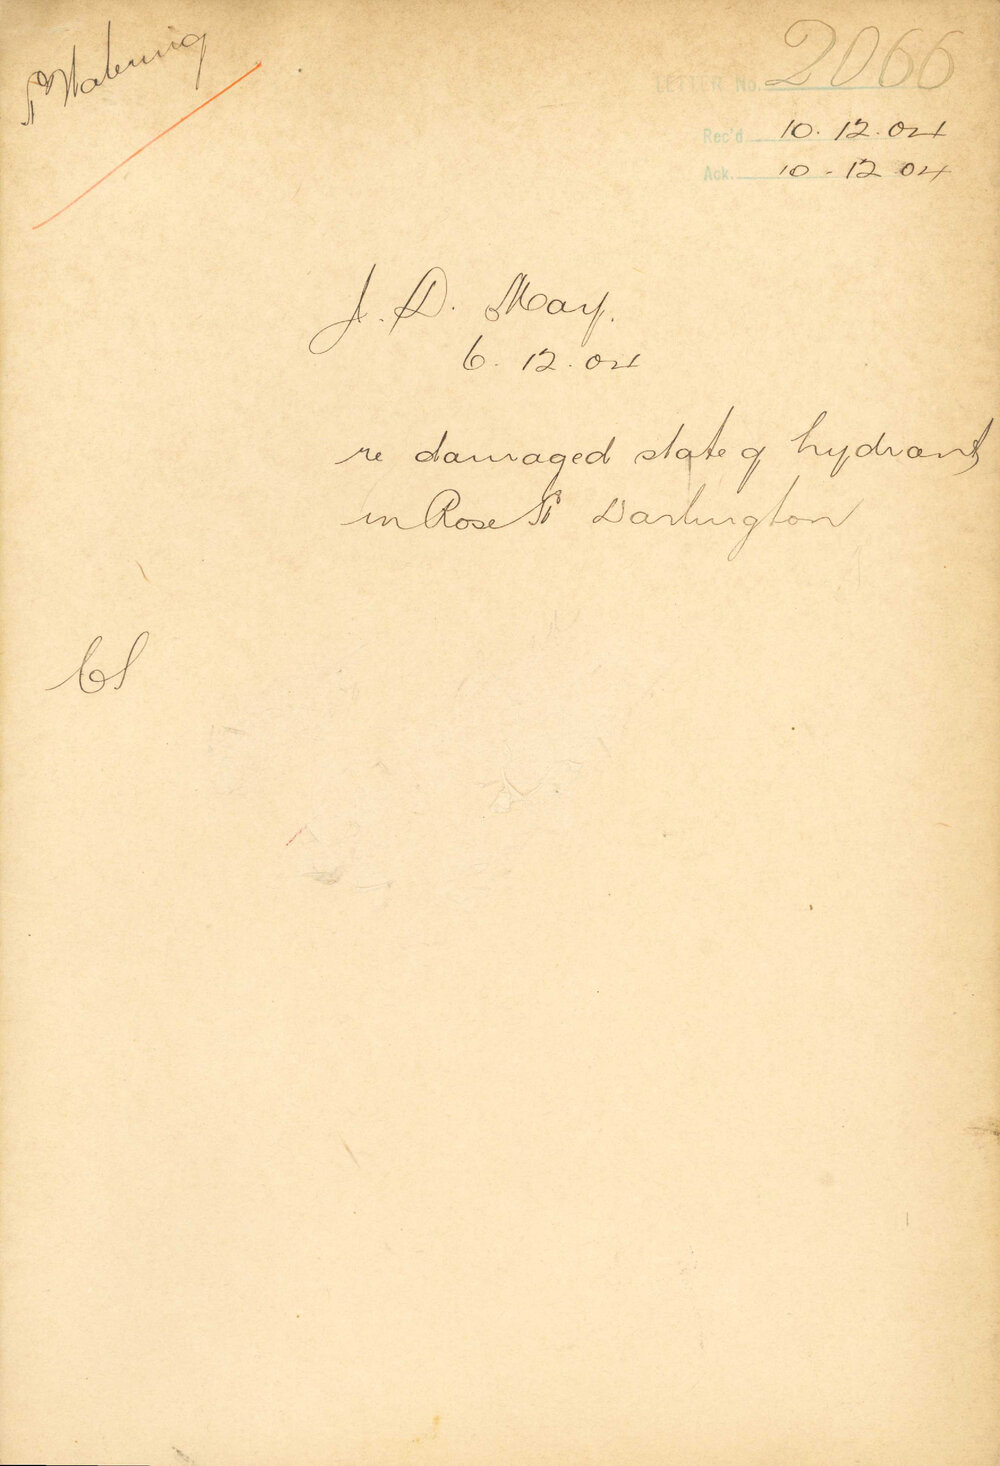 St Watering
LETTER No. 2066
Rec'd 10.12.04
Ack. 10-12 04
J. D. May.
6.12.04
re damaged state of hydrant
in Rose St Darlington
CS